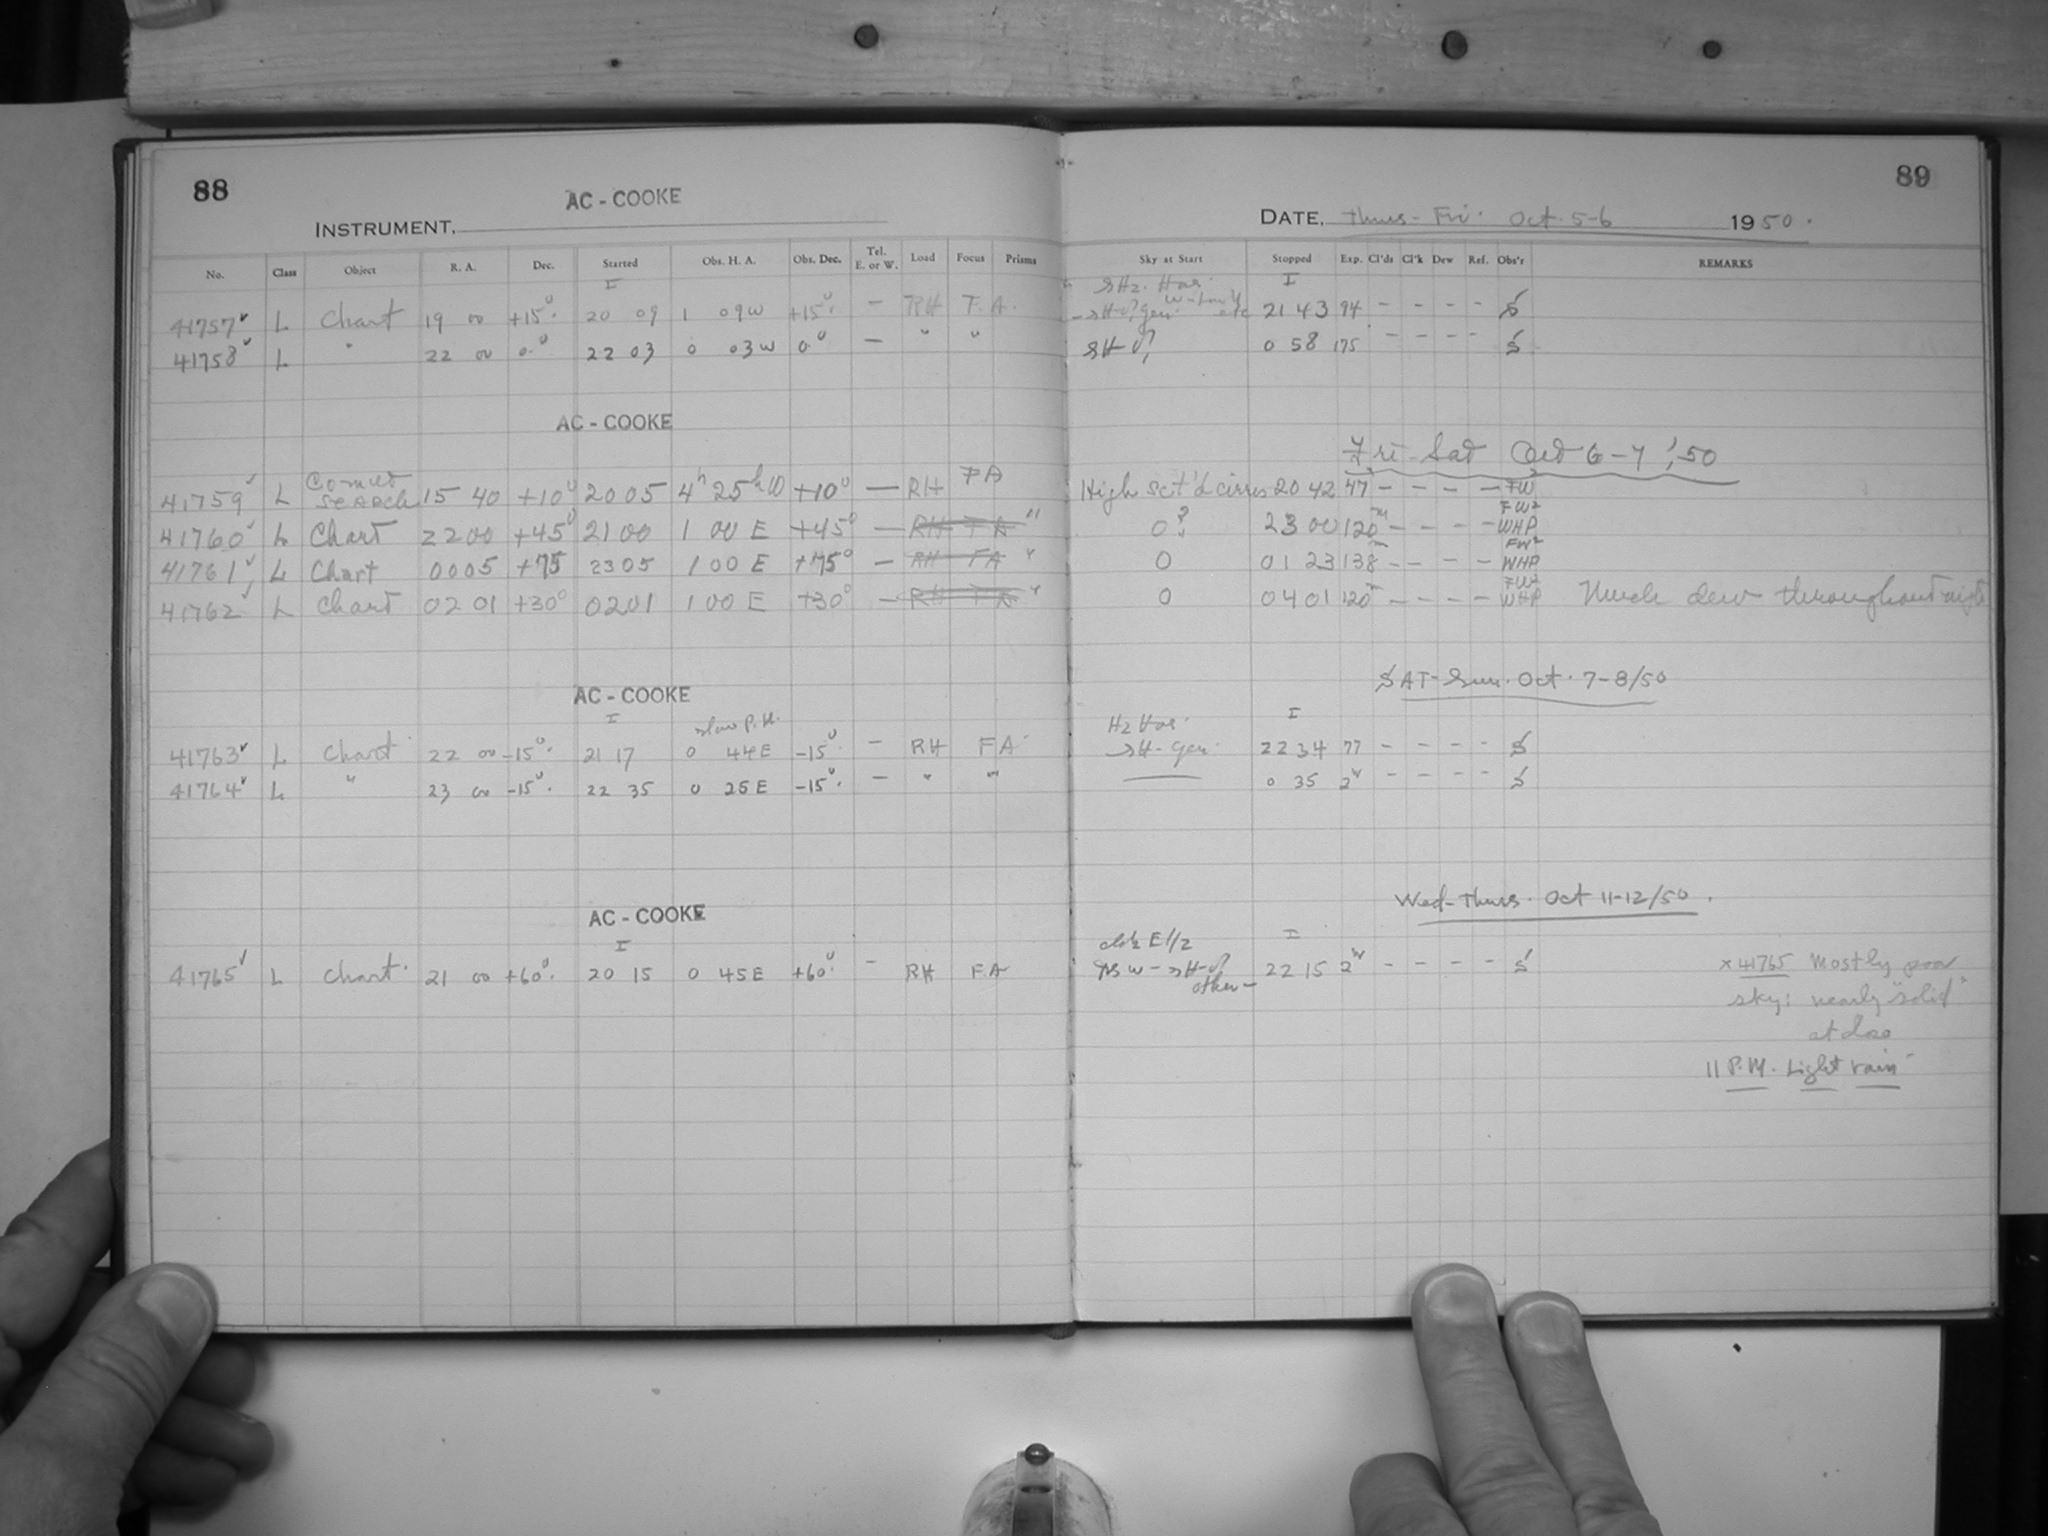 88
AC - COOKE
INSTRUMENT.
No. Class Object R. A. Dec. Started Obs. H. A. Obs. Dec. Tel. E. or W. Load Focus Prisms
I
41757 L Chart 19 00 +15° 20 09 1 09W +15° - RH F.A.
41758 L " 22 00 0° 22 03 0 03W 0° - " "
AC - COOKE
41759 L Comet Search 15 40 +10° 2005 4h 25m W +10° - RH FA
41760 L Chart 2200 +45° 2100 1 00 E +45° - RH FA "
41761 L Chart 0005 +75 2305 1 00 E +75° - RH FA "
41762 L Chart 02 01 +30° 0201 1 00 E +30° - RH FA "
AC - COOKE
I slow P.M.
41763 L Chart 22 00 -15° 21 17 0 44E -15° - RH FA
41764 L " 23 00 -15° 22 35 0 25E -15° - " "
AC - COOKE
I
41765 L Chart 21 00 +60° 20 15 0 45E +60° - RH FA
89
DATE, Thurs - Fri. Oct. 5-6 1950.
Sky at Start Stopped Exp. Cl'ds Cl'k Dew Ref. Obs'r REMARKS
I
21 43 94 - - - - S
0 58 175 - - - - S
Fri - Sat Oct 6-7, '50
High sct'd cirrus 20 42 47 - - - - FW
0? 23 00 120m - - - - FW² WHP
0 01 23 138m - - - - FW² WHP
0 04 01 120m - - - - FW² WHP Much dew throughout night
SAT - Sun. Oct. 7-8/50
Hz Hor. I
gen. 22 34 77 - - - - S
0 35 2h - - - - S
Wed - Thurs. Oct 11-12/50.
E 1/2 I
other - 22 15 2h - - - - S x 41765 Mostly poor
sky: nearly "solid"
at close
11 P.M. Light rain